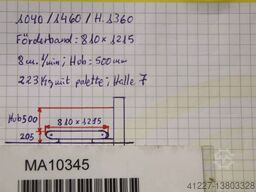 1040 / 1460 / H. 1360
Förderband: 810 x 1215
8 cm./min; Hub: 500mm
223 Kg mit palette; Halle 7
Hub 500
810 x 1215
205
MA10345
41227-13803328